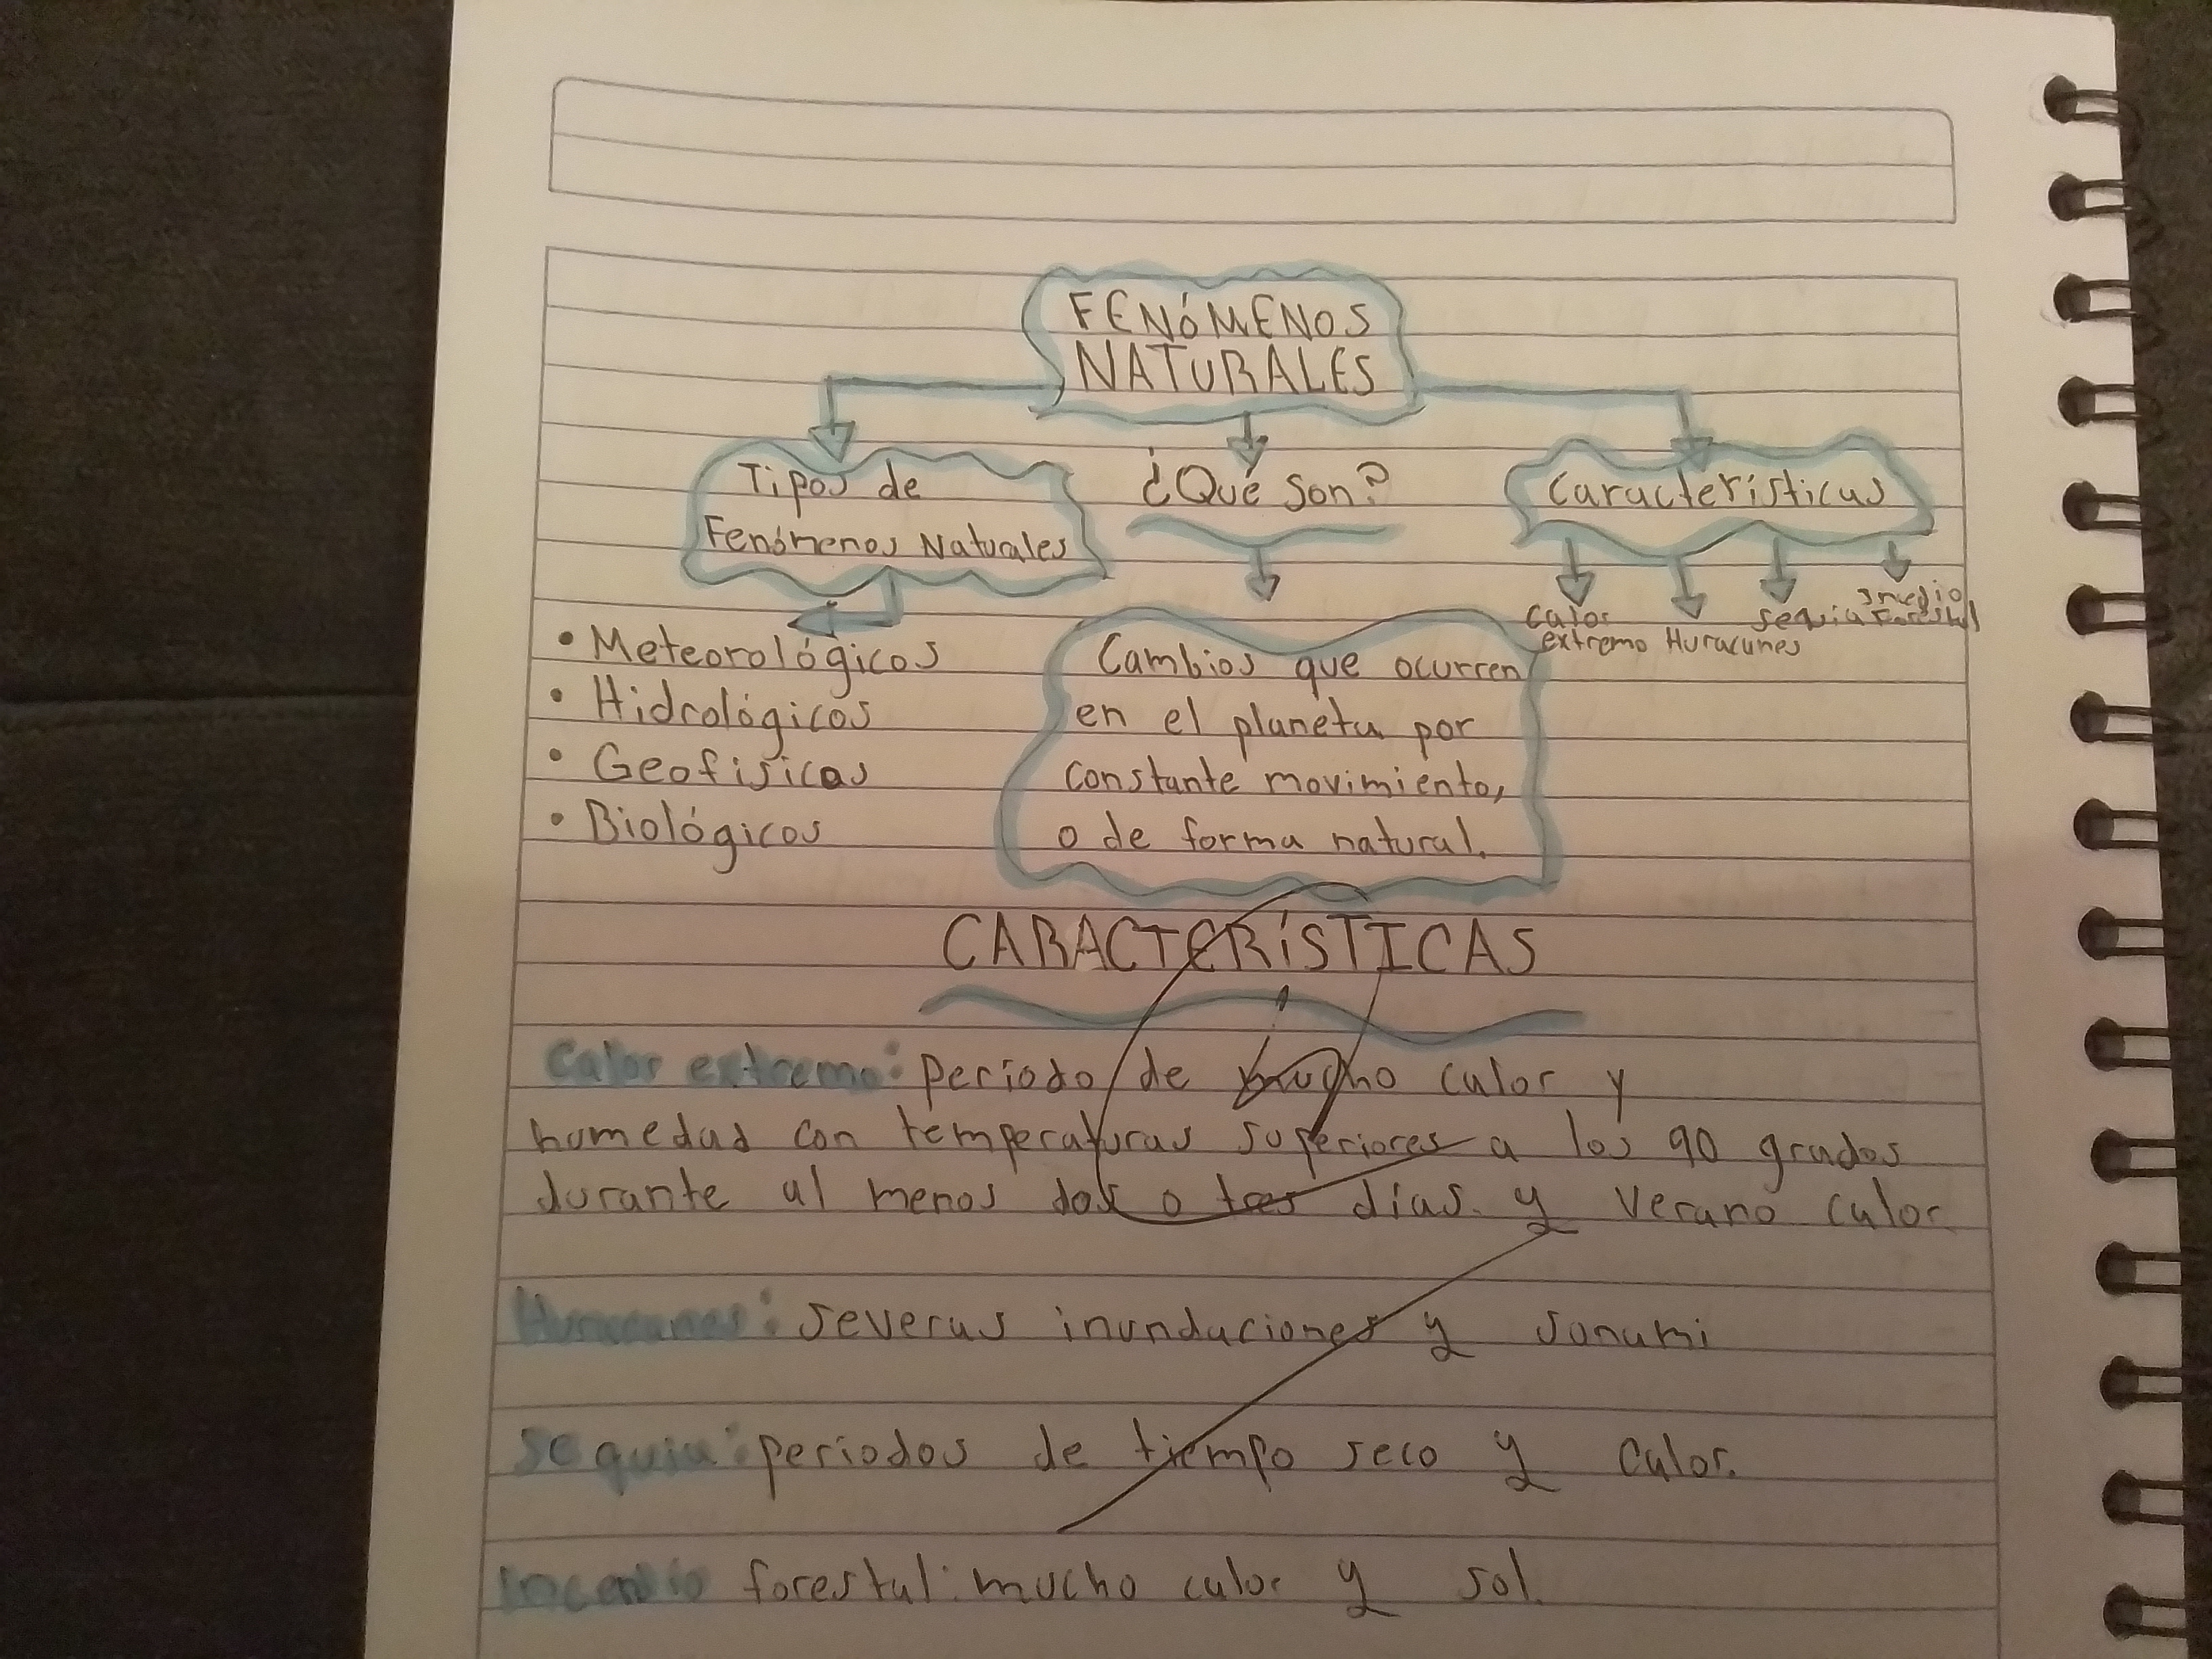 FENÓMENOS
NATURALES
Tipos de
Fenómenos Naturales
¿Qué son?
Características
• Meteorológicos
• Hidrológicos
• Geofisicos
• Biológicos
Cambios que ocurren
en el planeta por
constante movimiento,
o de forma natural.
Calor
extremo
Huracanes
sequia
Forestal
CARACTERÍSTICAS
Calor extremo: periodo de mucho calor y
humedad con temperaturas superiores a los 90 grados
durante al menos dos o tres días. y verano calor
Huracanes: severas inundaciones y sunami
sequia: periodos de tiempo seco y calor.
Incendio forestal: mucho calor y sol.